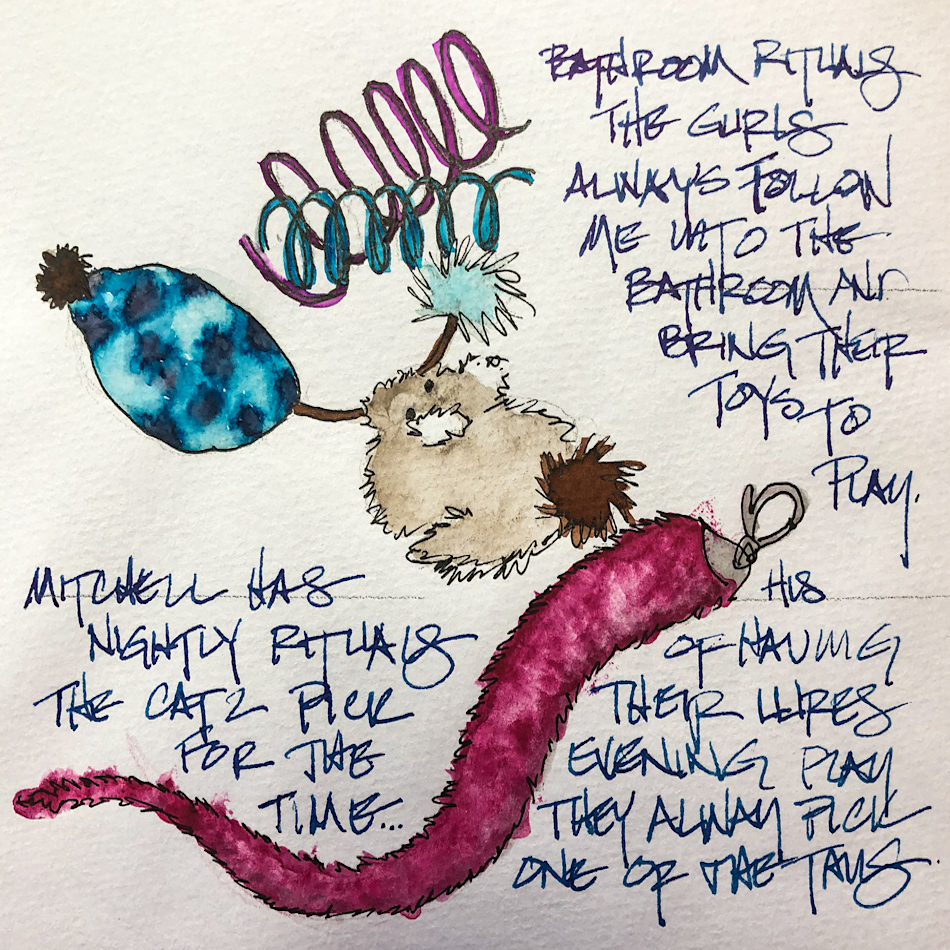 BATHROOM RITUALS
THE GIRLS
ALWAYS FOLLOW
ME INTO THE
BATHROOM AND
BRING THEIR
TOYS TO
PLAY.
MITCHELL HAS HIS
NIGHTLY RITUALS OF HAVING
THE CATS PICK THEIR LURES
FOR THE EVENING PLAY
TIME... THEY ALWAY PICK
ONE OF THE TAILS.